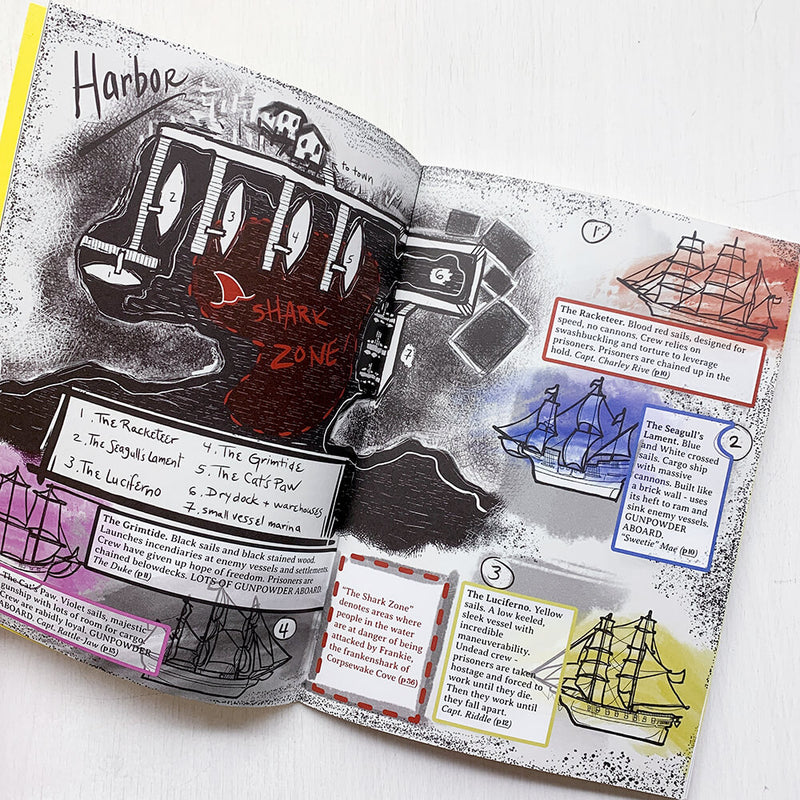 Harbor
to town
2
3
4
5
1
6
7
SHARK
ZONE
1. The Racketeer
2. The Seagull's Lament
3. The Luciferno
4. The Grimtide
5. The Cat's Paw
6. Dry dock + warehouses
7. small vessel marina
The Grimtide. Black sails and black stained wood.
Launches incendiaries at enemy vessels and settlements.
Crew have given up hope of freedom. Prisoners are
chained belowdecks. LOTS OF GUNPOWDER ABOARD.
The Duke (p11)
The Cat's Paw. Violet sails, majestic
gunship with lots of room for cargo.
Crew are rabidly loyal. GUNPOWDER
ABOARD. Capt. Rattle Jaw (p13)
4
1
The Racketeer. Blood red sails, designed for
speed, no cannons. Crew relies on
swashbuckling and torture to leverage
prisoners. Prisoners are chained up in the
hold. Capt. Charley Rive (p10)
2
The Seagull's
Lament. Blue
and White crossed
sails. Cargo ship
with massive
cannons. Built like
a brick wall - uses
its heft to ram and
sink enemy vessels.
GUNPOWDER
ABOARD.
"Sweetie" Mae (p10)
"The Shark Zone"
denotes areas where
people in the water
are at danger of being
attacked by Frankie,
the frankenshark of
Corpsewake Cove (p36)
3
The Luciferno. Yellow
sails. A low keeled,
sleek vessel with
incredible
maneuverability.
Undead crew -
prisoners are taken
hostage and forced to
work until they die.
Then they work until
they fall apart.
Capt. Riddle (p12)